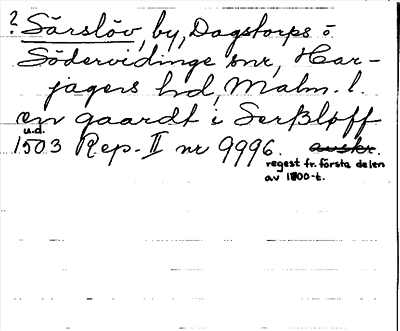 ? Särslöv, by, Dagstorps o.
Södervidinge snr, Har-
jagers hd, Malm. l.
en gaardt i Serßløff
u.d.
1503 Rep. II nr 9996. avskr.
regest fr. första delen
av 1800-t.